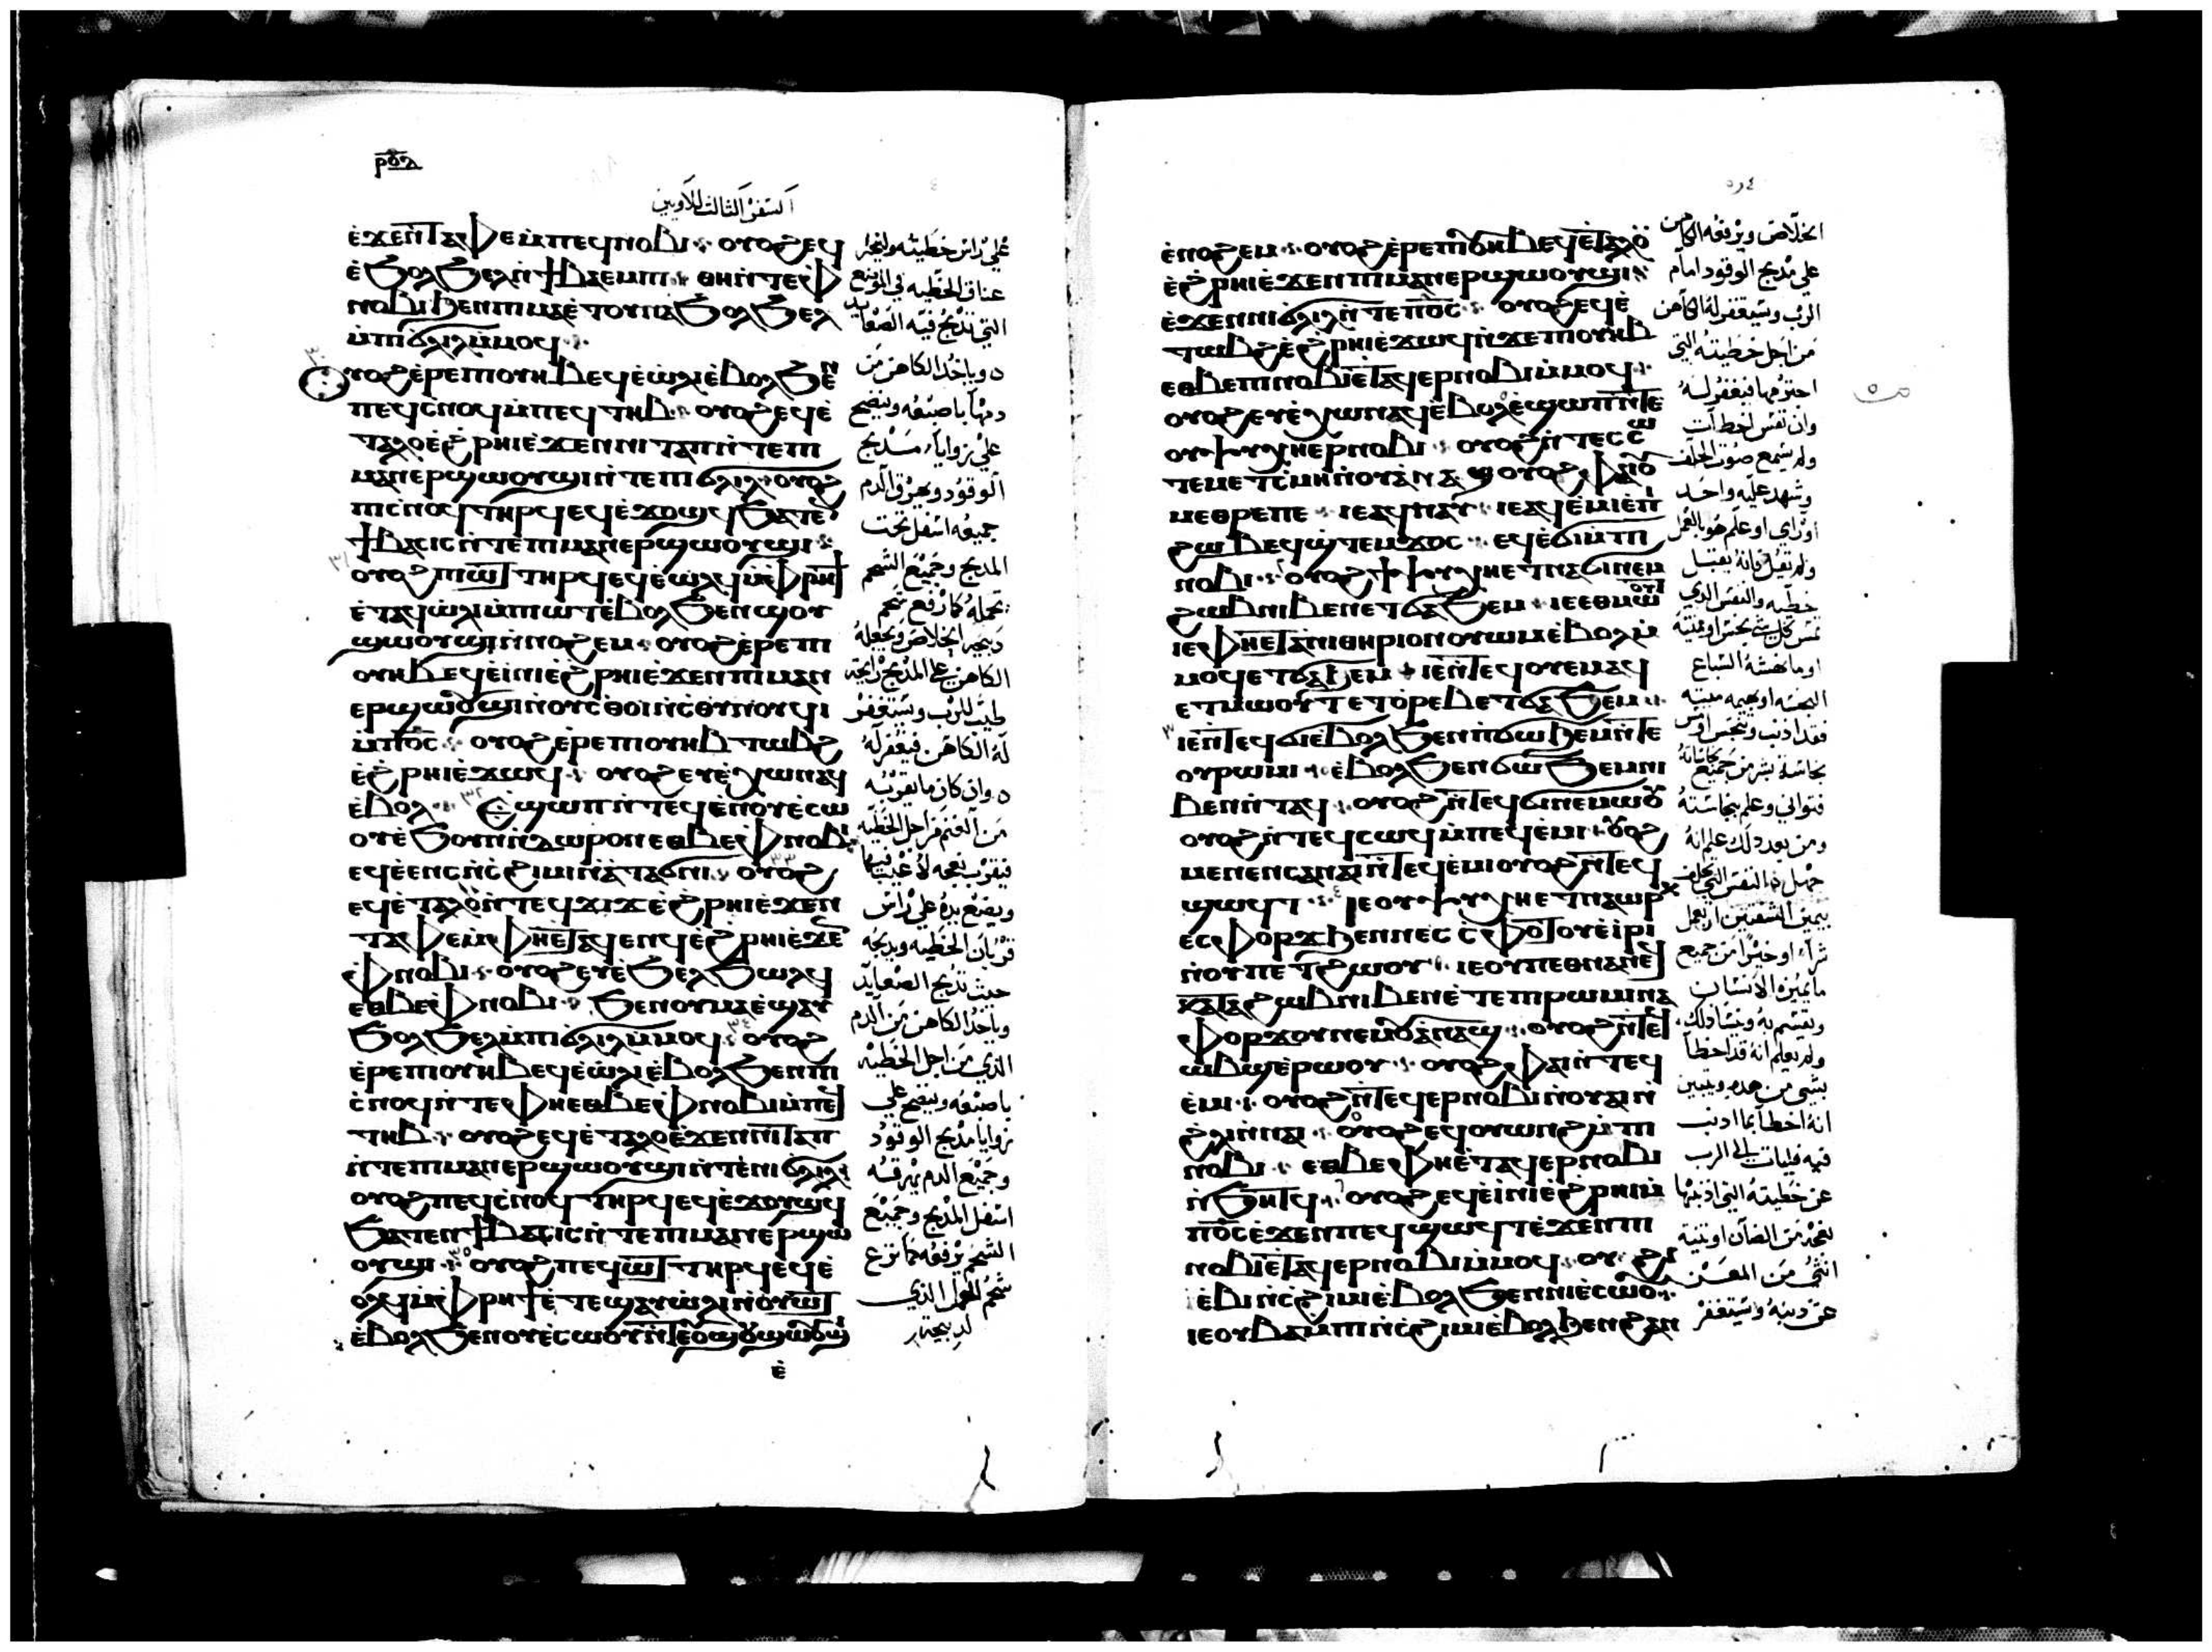 ⲣⲟⲁ
السفر الثالث للاويين
ⲉ̀ϫⲉⲛ̀ⲧⲁⲫⲉ ⲙ̀ⲡⲉϥⲛⲟⲃⲓ ⁘ ⲟⲩⲟϩ ⲉϥ
ⲉ̀ϧⲟⲗϧⲉⲗ ⲛ̀ϯⲃⲁⲉⲙⲡⲓ
ⲛⲟⲃⲓ ϧⲉⲛⲡⲓⲙⲁ ⲉ̀ⲧⲟⲩⲛⲁϧⲟⲗϧⲉⲗ
ⲙ̀ⲡⲓϭⲗⲓⲗ ⲙ̀ⲙⲟϥ ⁘
ⲟⲩⲟϩ ⲉ̀ⲣⲉⲡⲓⲟⲩⲏⲃ ⲉϥⲉ̀ⲱ̀ⲗⲓ ⲉ̀ⲃⲟⲗϧⲉⲛ
ⲡⲉϥⲥ̀ⲛⲟϥ ⲙ̀ⲡⲉϥⲧⲏⲃ ⁘ ⲟⲩⲟϩ ⲉϥⲉ̀
ⲧⲁⲗⲟ ⲉ̀ϩⲣⲏⲓ ⲉ̀ϫⲉⲛⲛⲓⲧⲁⲡ ⲛ̀ⲧⲉⲡⲓ
ⲙⲁⲛⲉⲣϣⲱⲟⲩϣⲓ ⲛ̀ⲧⲉⲡⲓϭⲗⲓⲗ ⁘ ⲟⲩⲟϩ
ⲡⲓⲥ̀ⲛⲟϥ ⲧⲏⲣϥ ⲉϥⲉ̀ϫⲟϣϥ ϧⲁⲧⲉⲛ
ϯⲃⲁⲥⲓⲥ ⲛ̀ⲧⲉⲡⲓⲙⲁⲛⲉⲣϣⲱⲟⲩϣⲓ ⁘
ⲟⲩⲟϩ ⲡⲓⲱⲧ ⲧⲏⲣϥ ⲉϥⲉ̀ⲱ̀ⲗϥ ⲙ̀ⲫⲣⲏϯ
ⲉ̀ⲧⲁϥⲱ̀ⲗⲓ ⲙ̀ⲡⲱⲧ ⲉ̀ⲃⲟⲗϧⲉⲛⲡϣⲟⲩ
ϣⲱⲟⲩϣⲓ ⲛ̀ⲛⲟϩⲉⲙ ⁘ ⲟⲩⲟϩ ⲉ̀ⲣⲉⲡⲓ
ⲟⲩⲏⲃ ⲉϥⲉ̀ⲓⲛⲓ ⲉ̀ϩⲣⲏⲓ ⲉ̀ϫⲉⲛⲡⲓⲙⲁⲛ
ⲉⲣϣⲱⲟⲩϣⲓ ⲛ̀ⲟⲩⲥ̀ⲑⲟⲓ ⲛ̀ⲥ̀ⲑⲩⲛⲟⲩϥⲓ
ⲙ̀ⲡⲟ̅ⲥ̅ ⁘ ⲟⲩⲟϩ ⲉ̀ⲣⲉⲡⲓⲟⲩⲏⲃ ⲧⲱⲃϩ
ⲉ̀ϩⲣⲏⲓ ⲉ̀ϫⲱϥ ⁘ ⲟⲩⲟϩ ⲉⲩⲉ̀ⲭⲱ ⲛⲁϥ
ⲉ̀ⲃⲟⲗ ⁘ ⲉ̀ϣⲱⲡ ⲛ̀ⲧⲉϥⲉ̀ⲛ ⲟⲩⲉ̀ⲥⲱ
ⲟⲩ ⲉ̀ϧⲟⲩⲛ ⲛ̀ⲇⲱⲣⲟⲛ ⲉⲑⲃⲉⲫⲛⲟⲃⲓ
ⲉϥⲉ̀ⲉⲛⲥ ⲛ̀ⲥ̀ϩⲓⲙⲓ ⲛ̀ⲁⲧⲁϭⲛⲓ ⁘ ⲟⲩⲟϩ
ⲉϥⲉ̀ⲧⲁⲗⲟ ⲛ̀ⲧⲉϥϫⲓϫ ⲉ̀ϩⲣⲏⲓ ⲉ̀ϫⲉⲛ
ⲧⲁⲫⲉ ⲙ̀ⲫⲏⲉⲧⲁϥⲉⲛϥ ⲉ̀ϩⲣⲏⲓ ⲉ̀ϫⲉⲛ
ⲫⲛⲟⲃⲓ ⁘ ⲟⲩⲟϩ ⲉⲩⲉ̀ϧⲉⲗϧⲱⲗϥ
ⲉⲑⲃⲉⲫⲛⲟⲃⲓ ⁘ ϧⲉⲛⲟⲩⲙⲁ ⲉ̀ϣⲁⲩ
ϧⲟⲗϧⲉⲗ ⲙ̀ⲡⲓϭⲗⲓⲗ ⲙ̀ⲙⲟϥ ⁘ ⲟⲩⲟϩ
ⲉ̀ⲣⲉⲡⲓⲟⲩⲏⲃ ⲉϥⲉ̀ⲱ̀ⲗⲓ ⲉ̀ⲃⲟⲗϧⲉⲛⲡⲓ
ⲥ̀ⲛⲟϥ ⲛ̀ⲧⲉⲫⲏ ⲉⲑⲃⲉⲫⲛⲟⲃⲓ ⲙ̀ⲡⲉϥ
ⲧⲏⲃ ⁘ ⲟⲩⲟϩ ⲉϥⲉ̀ⲧⲁⲗⲟ ⲉ̀ϫⲉⲛⲛⲓⲧⲁⲡ
ⲛ̀ⲧⲉⲡⲓⲙⲁⲛⲉⲣϣⲱⲟⲩϣⲓ ⲛ̀ⲧⲉⲛⲓϭⲗⲓⲗ
ⲟⲩⲟϩ ⲡⲉϥⲥ̀ⲛⲟϥ ⲧⲏⲣϥ ⲉϥⲉ̀ϫⲟⲩϣϥ
ϧⲁⲧⲉⲛ ϯⲃⲁⲥⲓⲥ ⲛ̀ⲧⲉⲡⲓⲙⲁⲛⲉⲣϣⲱ
ⲟⲩϣⲓ ⁘ ⲟⲩⲟϩ ⲡⲉϥⲱⲧ ⲧⲏⲣϥ ⲉϥⲉ̀
ⲟⲗϥ ⲙ̀ⲫⲣⲏϯ ⲉ̀ⲧⲉϣⲁⲩⲱ̀ⲗⲓ ⲛ̀ⲟⲩⲱⲧ
ⲉ̀ⲃⲟⲗϧⲉⲛ ⲟⲩⲉ̀ⲥⲱⲟⲩ
ⲉ̀
علي راس خطيته وليجر
عناق الخطيه في الموضع
التي تذبح فيه الصعايد
وياخذ الكاهن من
دمها باصبعه وينضح
علي زوايا مذبح
الوقود ويهرق الدم
جميعه اسفل تحت
المذبح وجميع الشحم
تحمله كما رفع شحم
ذبيحه الخلاص ويجعله
الكاهن علي المذبح رايحة
طيب للرب وسيتغفر
له الكاهن فيغفر له
وان كان ما يقربه
من الغنم من اجل الخطيه
فيقرب نعجه لا عيب فيها
ويضع يده علي راس
قربان الخطيه ويذبحه
حيث تذبح الصعايد
وياخذ الكاهن من الدم
الذي من اجل الخطيه
باصبعه وينضح علي
زوايا مذبح الوقود
وجميع الدم يهرقه
اسفل المذبح وجميع
الشحم يرفعه كما نزع
شحم الحمل الذي
لذبيحة
ⲉ̀ⲛⲟϩⲉⲙ ⁘ ⲟⲩⲟϩ ⲉ̀ⲣⲉⲡⲓⲟⲩⲏⲃ ⲉϥⲉ̀ⲧⲁⲗⲟ
ⲉ̀ϩⲣⲏⲓ ⲉ̀ϫⲉⲛⲡⲓⲙⲁⲛⲉⲣϣⲱⲟⲩϣⲓ
ⲉ̀ϫⲉⲛⲛⲓϭⲗⲓⲗ ⲛ̀ⲧⲉⲡⲟ̅ⲥ̅ ⁘ ⲟⲩⲟϩ ⲉϥⲉ̀
ⲧⲱⲃϩ ⲉ̀ϩⲣⲏⲓ ⲉ̀ϫⲱϥ ⲛ̀ϫⲉⲡⲓⲟⲩⲏⲃ
ⲉⲑⲃⲉⲡⲓⲛⲟⲃⲓ ⲉ̀ⲧⲁϥⲉⲣⲛⲟⲃⲓ ⲙ̀ⲙⲟϥ ⁘
ⲟⲩⲟϩ ⲉⲩⲉ̀ⲭⲱ ⲛⲁϥ ⲉ̀ⲃⲟⲗ ⲉ̀ϣⲱⲡ ⲛ̀ⲧⲉ
ⲟⲩⲯⲩⲭⲏ ⲉⲣⲛⲟⲃⲓ ⁘ ⲟⲩⲟϩ ⲛ̀ⲧⲉⲥⲥⲱ
ⲧⲉⲙ ⲉⲧⲥ̀ⲙⲏ ⲛ̀ⲟⲩⲁⲛⲁϣ ⲟⲩⲟϩ ⲫⲁⲓ ⲟ
ⲙⲉⲑⲣⲉ ⲡⲉ ⁘ ⲓⲉ ⲁϥⲛⲁⲩ ⁘ ⲓⲉ ⲁϥⲉ̀ⲙⲓ ⲉ̀ⲡⲓ
ϩⲱⲃ ⲉϥϣ̀ⲧⲉⲙϫⲟⲥ ⁘ ⲉϥⲉ̀ϭⲓ ⲙ̀ⲡⲓ
ⲛⲟⲃⲓ ⁘ ⲟⲩⲟϩ ϯⲯⲩⲭⲏ ⲉⲧⲛⲁϭⲓⲛⲉⲙ
ϩⲱⲃ ⲛⲓⲃⲉⲛ ⲉⲧϭⲁϧⲉⲙ ⁘ ⲓⲉ ⲉⲑⲙⲱⲟⲩⲧ
ⲓⲉ ⲫⲏⲉⲧⲁⲡⲓⲑⲏⲣⲓⲟⲛ ⲟⲩⲱⲙ ⲉ̀ⲃⲟⲗⲙ̀
ⲙⲟϥ ⲉⲧϭⲁϧⲉⲙ ⁘ ⲓⲉ ⲛ̀ⲧⲉϥⲟⲩⲉⲙ ⲁϥ
ⲉⲧⲙⲱⲟⲩⲧ
ⲓⲉ ⲛ̀ⲧⲉϥϭⲓ ⲉ̀ⲃⲟⲗϧⲉⲛⲡϭⲱϧⲉⲙ ⲛ̀ⲧⲉ
ⲟⲩⲣⲱⲙⲓ ⁘ ⲉ̀ⲃⲟⲗϧⲉⲛϭⲱϧⲉⲙ ⲛⲓ
ⲃⲉⲛ ⲛ̀ⲧⲁϥ ⁘ ⲟⲩⲟϩ ⲛ̀ⲧⲉϥϭⲓⲛⲉⲙⲱⲟⲩ
ⲟⲩⲟϩ ⲛ̀ⲧⲉϥⲥⲱϥ ⲙ̀ⲡⲉϥⲉ̀ⲙⲓ ⁘ ⲟⲩⲟϩ
ⲙⲉⲛⲉⲛⲥⲁⲛⲁⲓ ⲛ̀ⲧⲉϥⲉ̀ⲙⲓ ⲟⲩⲟϩ ⲛ̀ⲧⲉϥ
ⲓⲉ ⲟⲩⲯⲩⲭⲏ ⲉⲧⲛⲁⲱⲣⲕ
ⲉⲥⲫⲟⲣϫ ϧⲉⲛⲛⲉⲥⲥⲫⲟⲧⲟⲩ ⲉ̀ⲓⲣⲓ
ⲛ̀ⲟⲩⲡⲉⲧϩⲱⲟⲩ ⁘ ⲓⲉ ⲟⲩⲡⲉⲑⲛⲁⲛⲉϥ
ⲕⲁⲧⲁ ϩⲱⲃ ⲛⲓⲃⲉⲛ ⲉ̀ⲧⲉⲡⲓⲣⲱⲙⲓ ⲛⲁ
ⲫⲟⲣϫⲟⲩ ⲛⲉⲙ ⲟⲩⲁⲛⲁϣ ⁘ ⲟⲩⲟϩ ⲛ̀ⲧⲉϥ
ⲱⲃϣ ⲉ̀ⲣⲱⲟⲩ ⁘ ⲟⲩⲟϩ ⲫⲁⲓ ⲛ̀ⲧⲉϥ
ⲉ̀ⲙⲓ ⁘ ⲟⲩⲟϩ ⲛ̀ⲧⲉϥⲉⲣⲛⲟⲃⲓ ⲛ̀ⲟⲩⲁⲓ ⲛ̀
ϩⲗⲓ ⲛ̀ⲛⲁⲓ ⁘ ⲟⲩⲟϩ ⲉϥⲟⲩⲱⲛϩ ⲙ̀ⲡⲓ
ⲛⲟⲃⲓ ⁘ ⲉⲑⲃⲉⲫⲏ ⲉ̀ⲧⲁϥⲉⲣⲛⲟⲃⲓ
ⲛ̀ϧⲏⲧϥ ⁘ ⲟⲩⲟϩ ⲉϥⲉ̀ⲓⲛⲓ ⲉ̀ϩⲣⲏⲓ ⲙ̀
ⲡⲟ̅ⲥ̅ ⲉ̀ϫⲉⲛ ⲡⲉϥϣⲱϥⲧ ⲉ̀ϫⲉⲛⲡⲓ
ⲛⲟⲃⲓ ⲉ̀ⲧⲁϥⲉⲣⲛⲟⲃⲓ ⲙ̀ⲙⲟϥ ⁘ ⲟⲩ
ⲉ̀ⲃⲓ ⲛ̀ⲥ̀ϩⲓⲙⲓ ⲉ̀ⲃⲟⲗϧⲉⲛⲛⲓⲉ̀ⲥⲱⲟⲩ
ⲓⲉ ⲟⲩⲃⲁⲙⲡⲓ ⲛ̀ⲥ̀ϩⲓⲙⲓ ⲉ̀ⲃⲟⲗϧⲉⲛϩⲁⲛ
الخلاص ويرفعه الكاهن
علي مذبح الوقود امام
الرب وسيتغفر له الكاهن
من اجل خطيته التي
اجترمها فيغفر له
وان نفس اخطات
ولم يسمع صوت الحلف
وشهد عليه واحد
او راي او علم هو بالعمل
ولم تقل فانه يقبل
خطيه والنفس الذي
تمس كل شي نجس او ميته
او ما نهشه السباع
النجسه او بهيمه ميته
فقد اذنب وتنجس او مس
نجاسة بشر من جميع نجاساته
فتواني وعلم بنجاسته
ومن بعد ذلك علم انه
جهل
بتميز الشفتين ان يعمل
شراً او خيراً من جميع
ما يميزه الانسان
ويقسم به وينسا ذلك
ولم يعلم انه قد اخطا
بشي من هذه ويتبين
انه اخطا بما اذنب
فيه فليات الي الرب
عن خطيته التي اذنبها
نعجه من الضان او ثنيه
انثي من المعز
عن ذنبه وسيتغفر